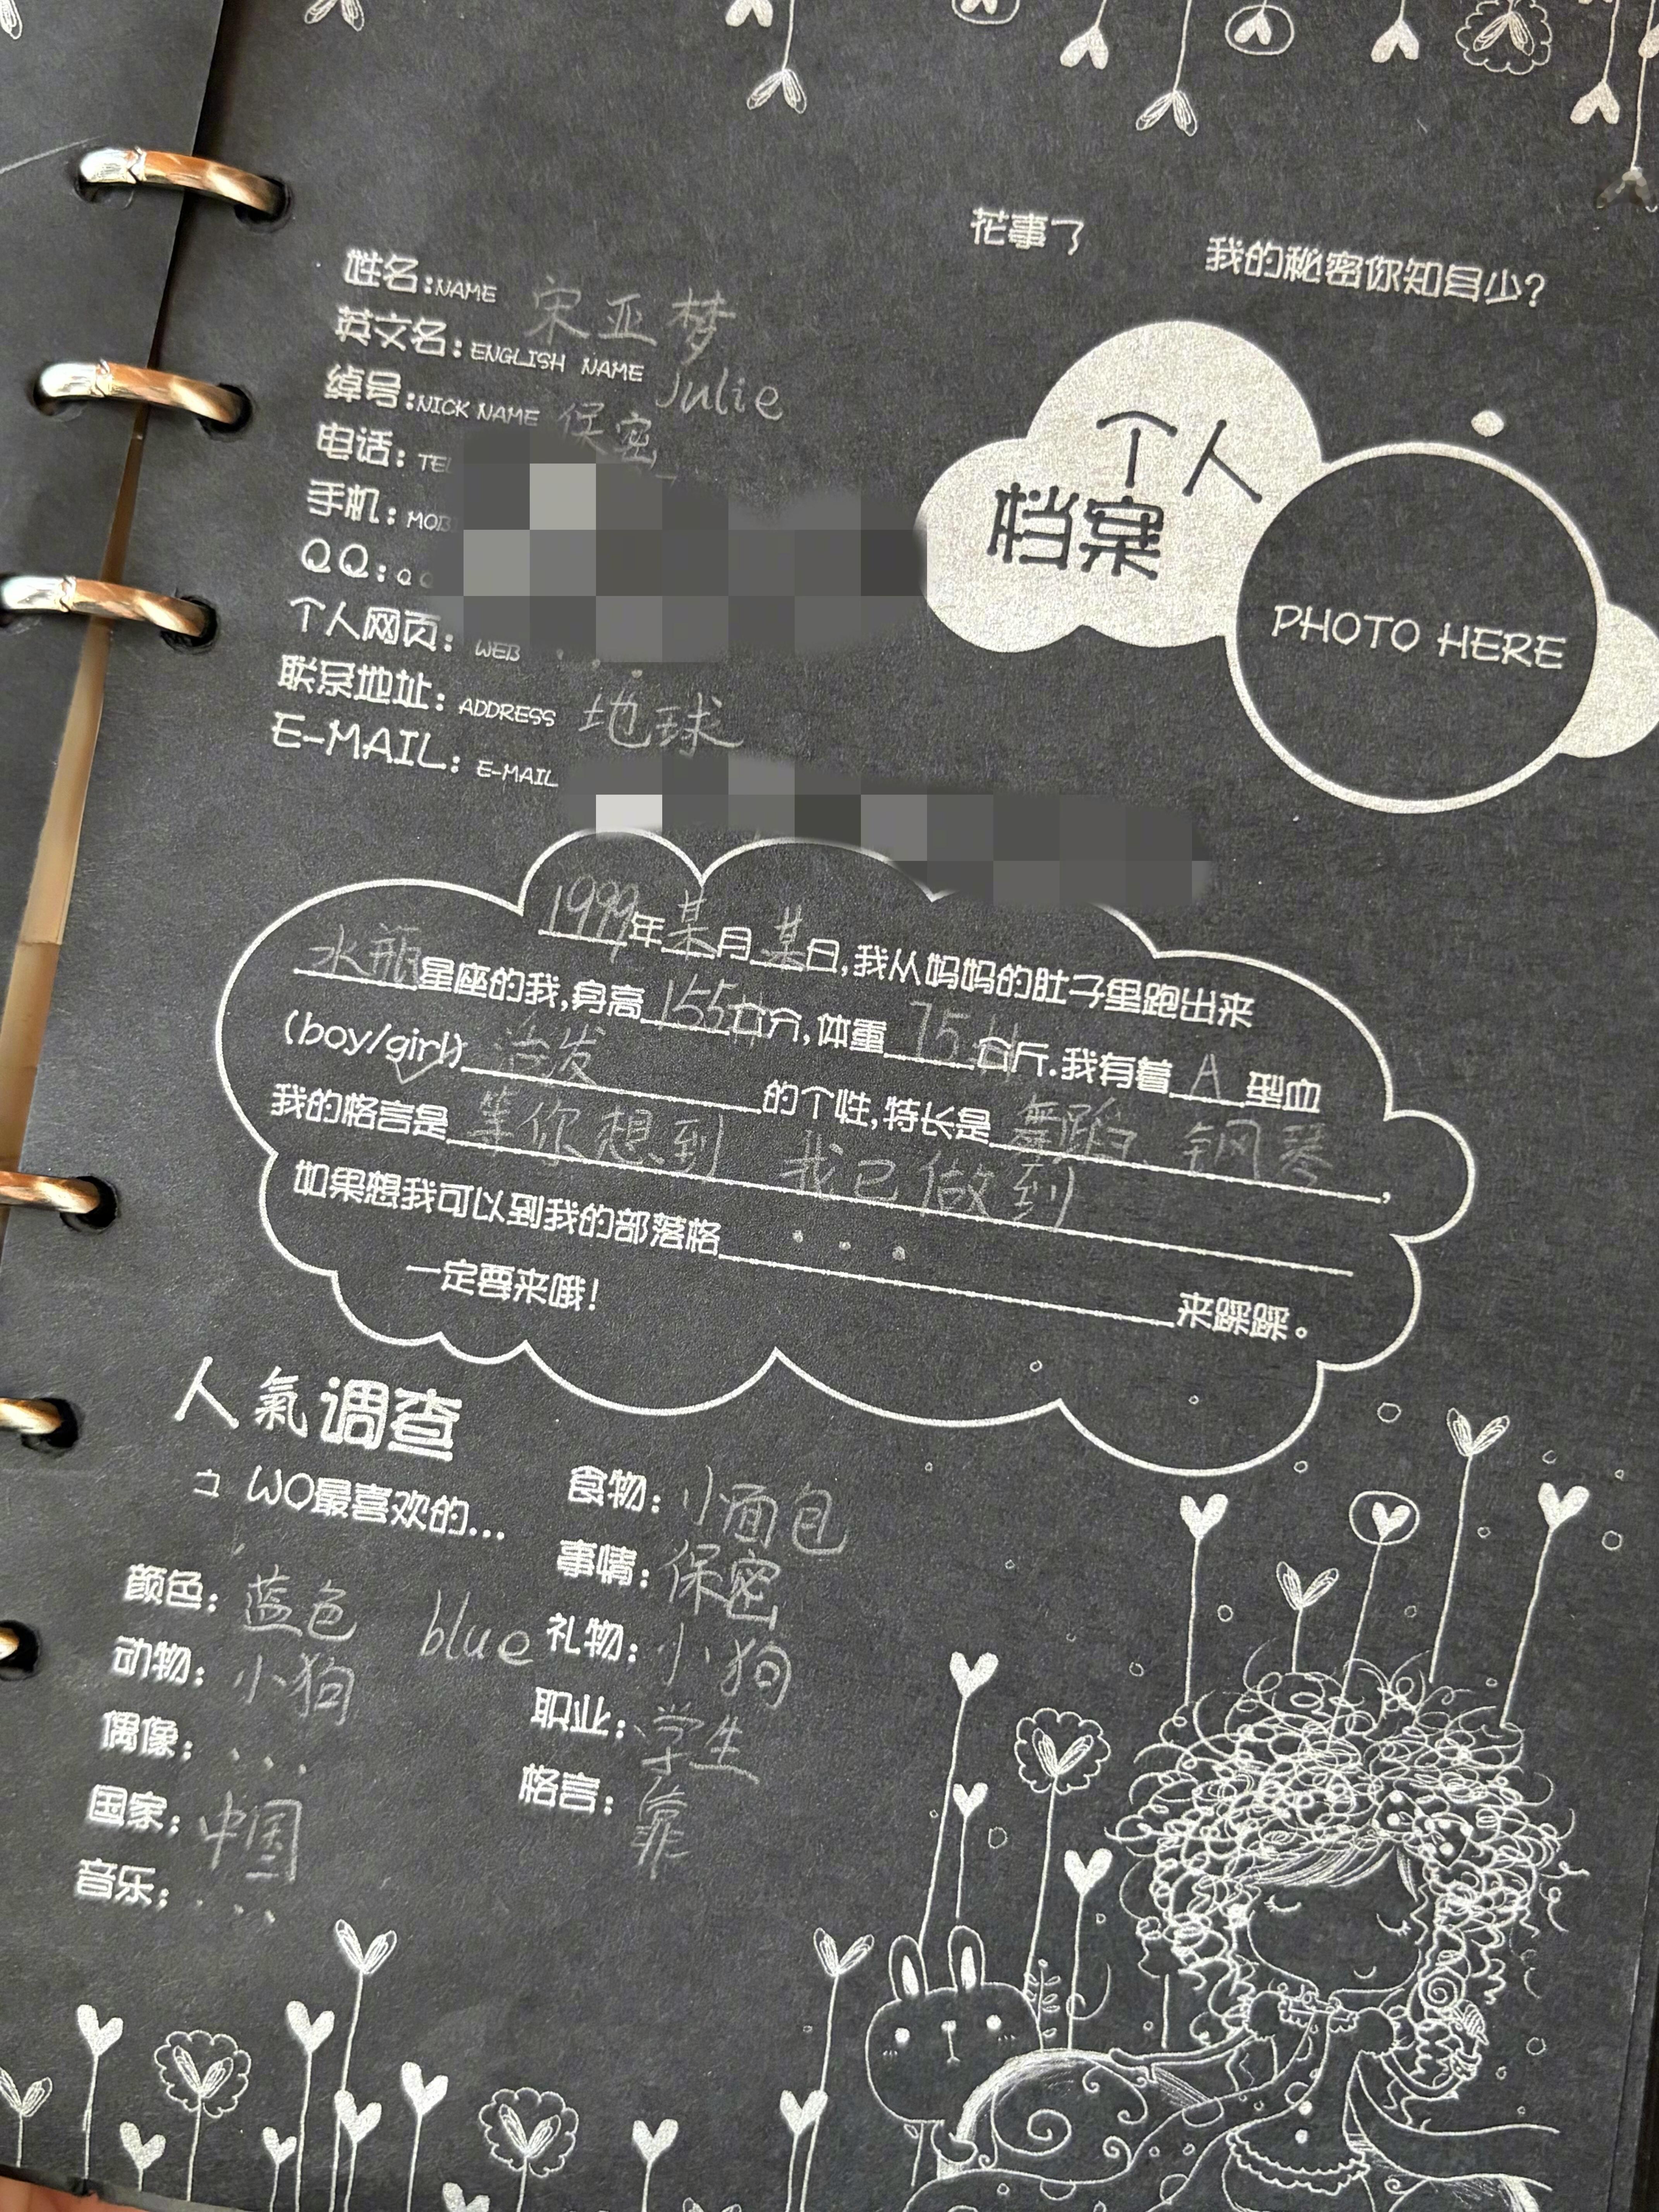 花事了 我的秘密你知多少?
姓名:NAME 宋亚梦
英文名:ENGLISH NAME Julie
绰号:NICK NAME 保密
个人
档案
电话: TEL
手机: MOB
QQ: QQ
PHOTO HERE
个人网页: WEB
联系地址: ADDRESS 地球
E-MAIL: E-MAIL
1999年某月某日,我从妈妈的肚子里跑出来
水瓶星座的我,身高155公分,体重75公斤.我有着A型血
(boy/girl) 活发的个性,特长是舞蹈、钢琴,
我的格言是等你想到 我已做到
如果想我可以到我的部落格...来踩踩。
一定要来哦!
人氣调查
WO最喜欢的...
食物:小面包
事情:保密
颜色:蓝色 blue
礼物:小狗
动物:小狗
职业:学生
偶像:...
格言:靠
国家:中国
音乐:...